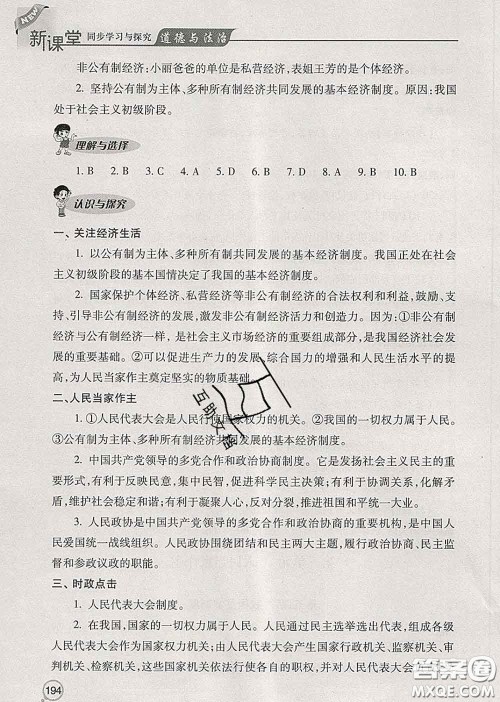 NEW
新课堂 同步学习与探究 道德与法治
非公有制经济；小丽爸爸的单位是私营经济，表姐王芳的是个体经济。
2. 坚持公有制为主体、多种所有制经济共同发展的基本经济制度。原因：我国
处于社会主义初级阶段。
理解与选择
1. B 2. B 3. C 4. A 5. D 6. D 7. A 8. A 9. B 10. B
认识与探究
一、关注经济生活
1. 以公有制为主体、多种所有制共同发展的基本经济制度。我国正处在社会
主义初级阶段的基本国情决定了我国的基本经济制度。
2. 国家保护个体经济、私营经济等非公有制经济的合法权利和利益，鼓励、支
持、引导非公有制经济的发展，激发非公有制经济活力和创造力。因为：①非公有制
经济与公有制经济一样，是社会主义市场经济的重要组成部分，是我国经济社会发
展的重要基础。②可以促进生产力的发展，综合国力的增强和人民生活水平的提
高，为人民当家作主奠定坚实的物质基础。
二、人民当家作主
1. ①人民代表大会是人民行使国家权力的机关。②我国的一切权力属于人民。
③公有制为主体、多种所有制经济共同发展的基本经济制度。
2. 中国共产党领导的多党合作和政治协商制度。它是发扬社会主义民主的重
要形式，有利于反映民意，集中民智，促进科学民主决策；有利于化解社会矛
盾，维护社会稳定和谐；有利于凝聚人心，反对分裂，推进祖国统一大业。
3. 人民政协是中国共产党领导的多党合作和政治协商的重要机构，是中国人
民爱国统一战线组织。人民政协围绕团结和民主两大主题，履行政治协商、民主监
督和参政议政的职能。
三、时政点击
1. 人民代表大会制度。
2. 在我国，国家的一切权力属于人民。人民通过民主选举选出代表，组成各级
人民代表大会作为国家权力机关；由人民代表大会产生国家行政机关、监察机关、审
判机关、检察机关，这些国家机关依法行使各自的职权，并对人民代表大会
194
互助文档
答案圈
MXQE.COM